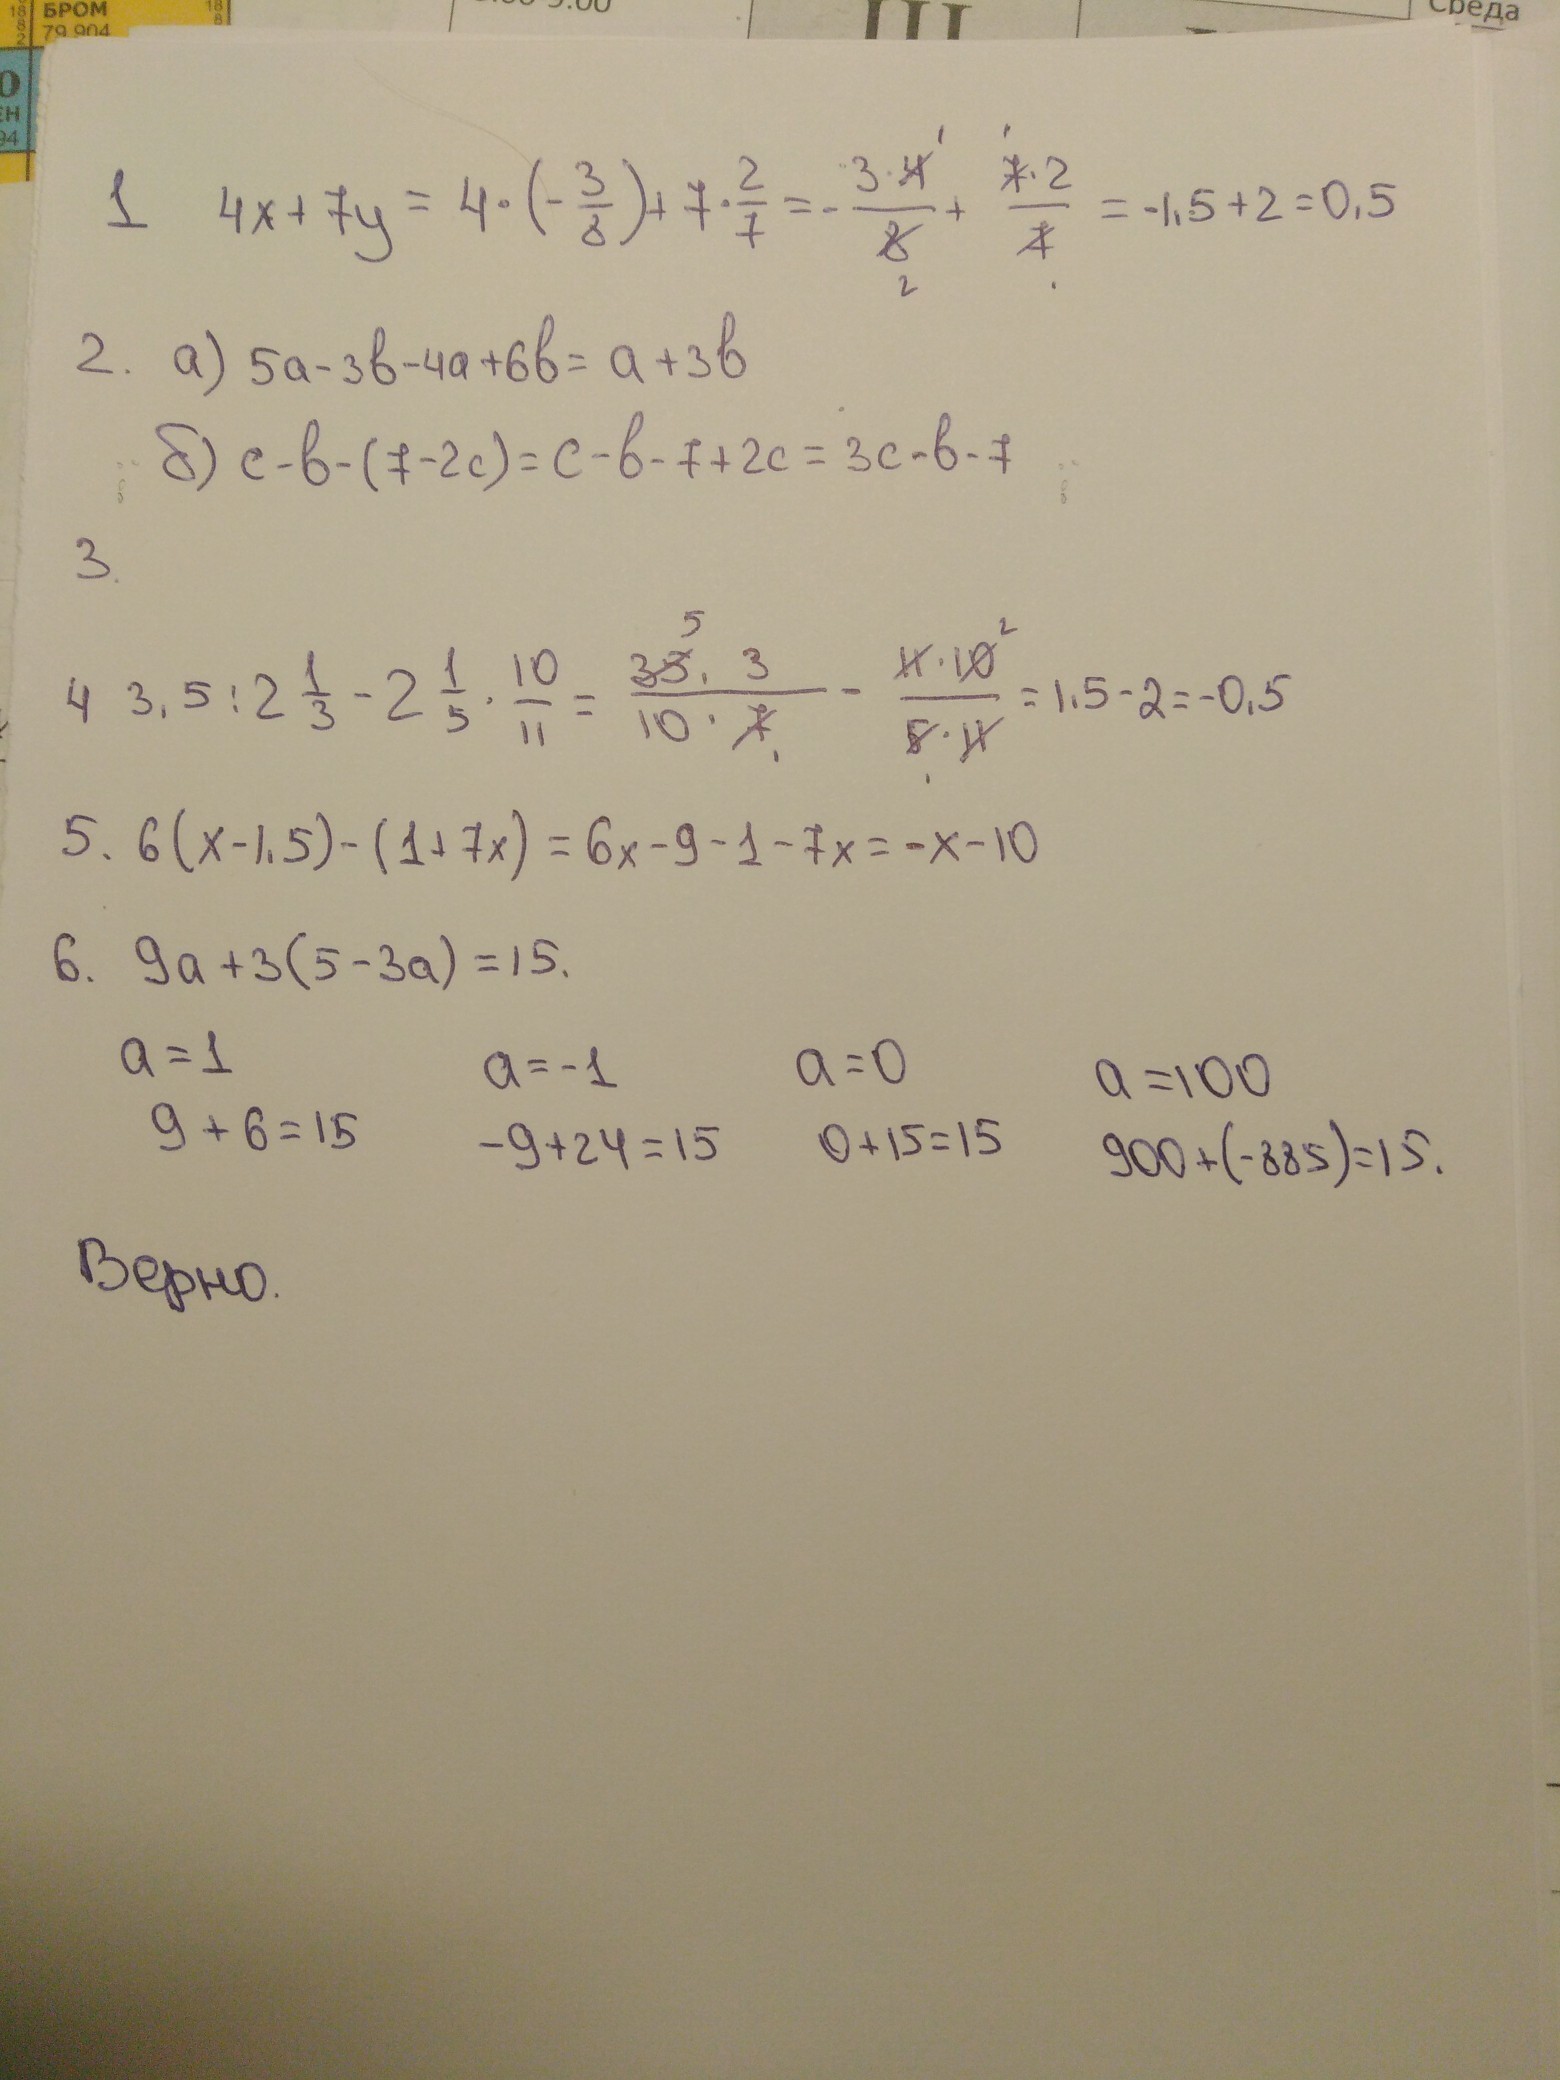 18 БРОМ 18
8 79,904 8
8
2
8.00-9.00
Ш
Среда
О
ЕН
94
1 4x+7y = 4·(-3/8)+7·2/7=-3·4/8+7·2/7=-1,5+2=0,5
1 1
2 1
2. а) 5a-3b-4a+6b=a+3b
б) c-b-(7-2c)=c-b-7+2c=3c-b-7
3.
4 3,5:2 1/3-2 1/5·10/11=35·3/10·7-11·10/5·11=1,5-2=-0,5
5 2
1 1
5. 6(x-1,5)-(1+7x)=6x-9-1-7x=-x-10
6. 9a+3(5-3a)=15.
a=1 a=-1 a=0 a=100
9+6=15 -9+24=15 0+15=15 900+(-885)=15.
Верно.